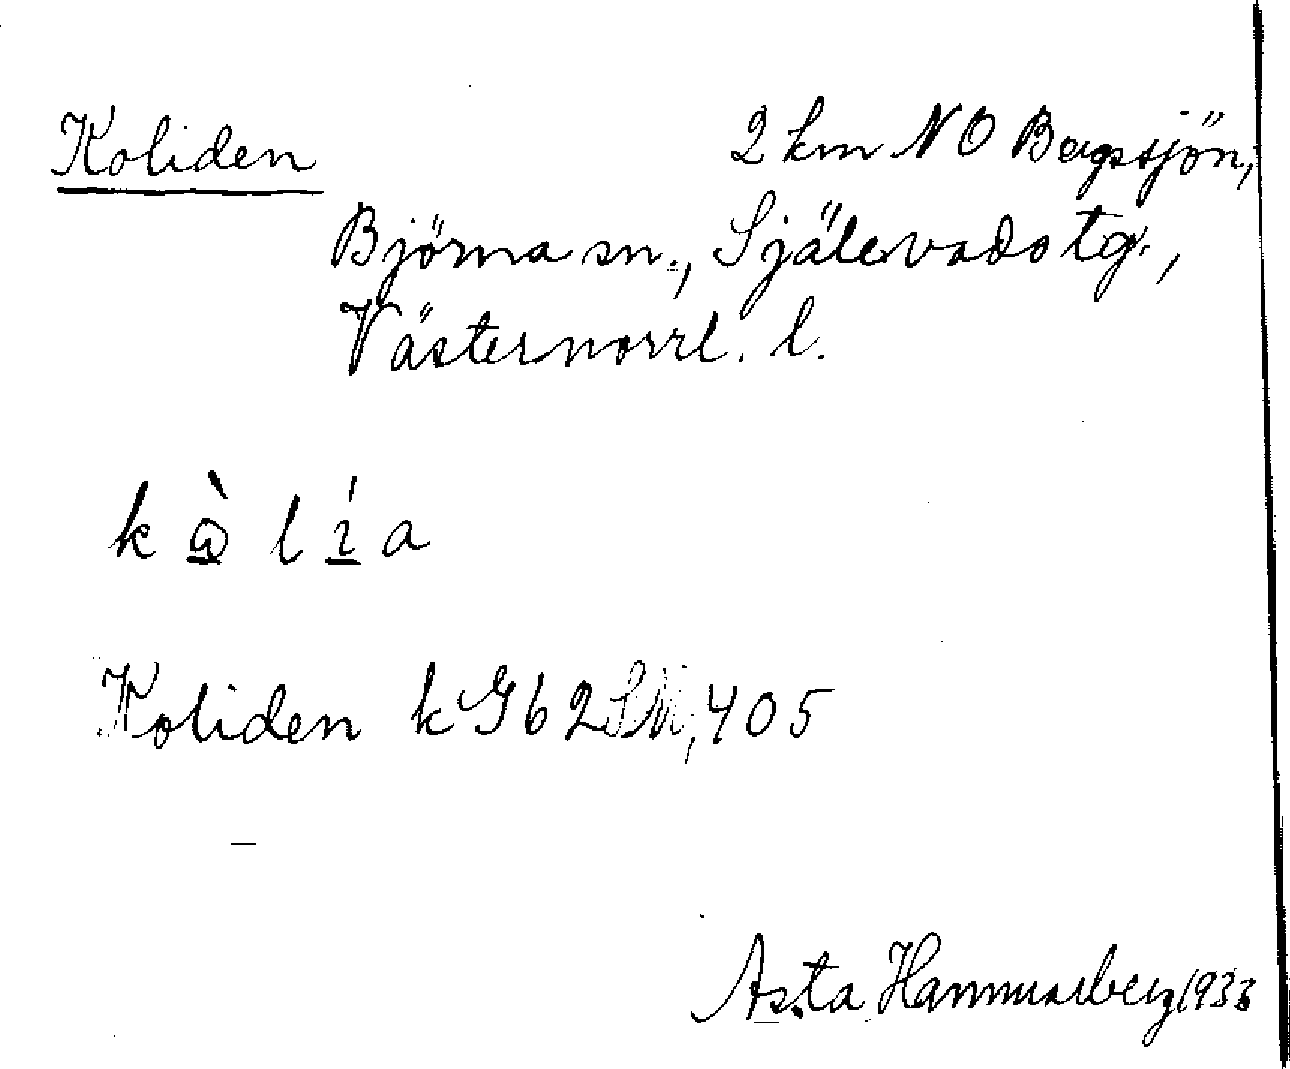 Koliden 2 km NO Bergsjön,
Björna sn., Själevads tg.,
Västernorrl. l.
k ò̲ l í̲ a
Koliden k G 62 SM, 405
Asta Hammarberg 1933